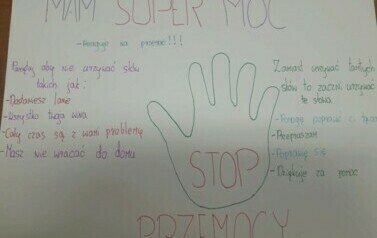 MAM SUPER MOC
- Reaguję na przemoc!!!
Pamiętaj aby nie używać słów
takich jak:
- Dostaniesz lanie
- Wszystko twoja wina
- Cały czas są z wami problemy
- Masz nie wracać do domu
STOP
PRZEMOCY
Zamiast używać tamtych
słów to zacznij używać
te słowa
- Pomogę poprawić ci tą
- Przepraszam
- Poprawię się
- Dziękuję za pomoc